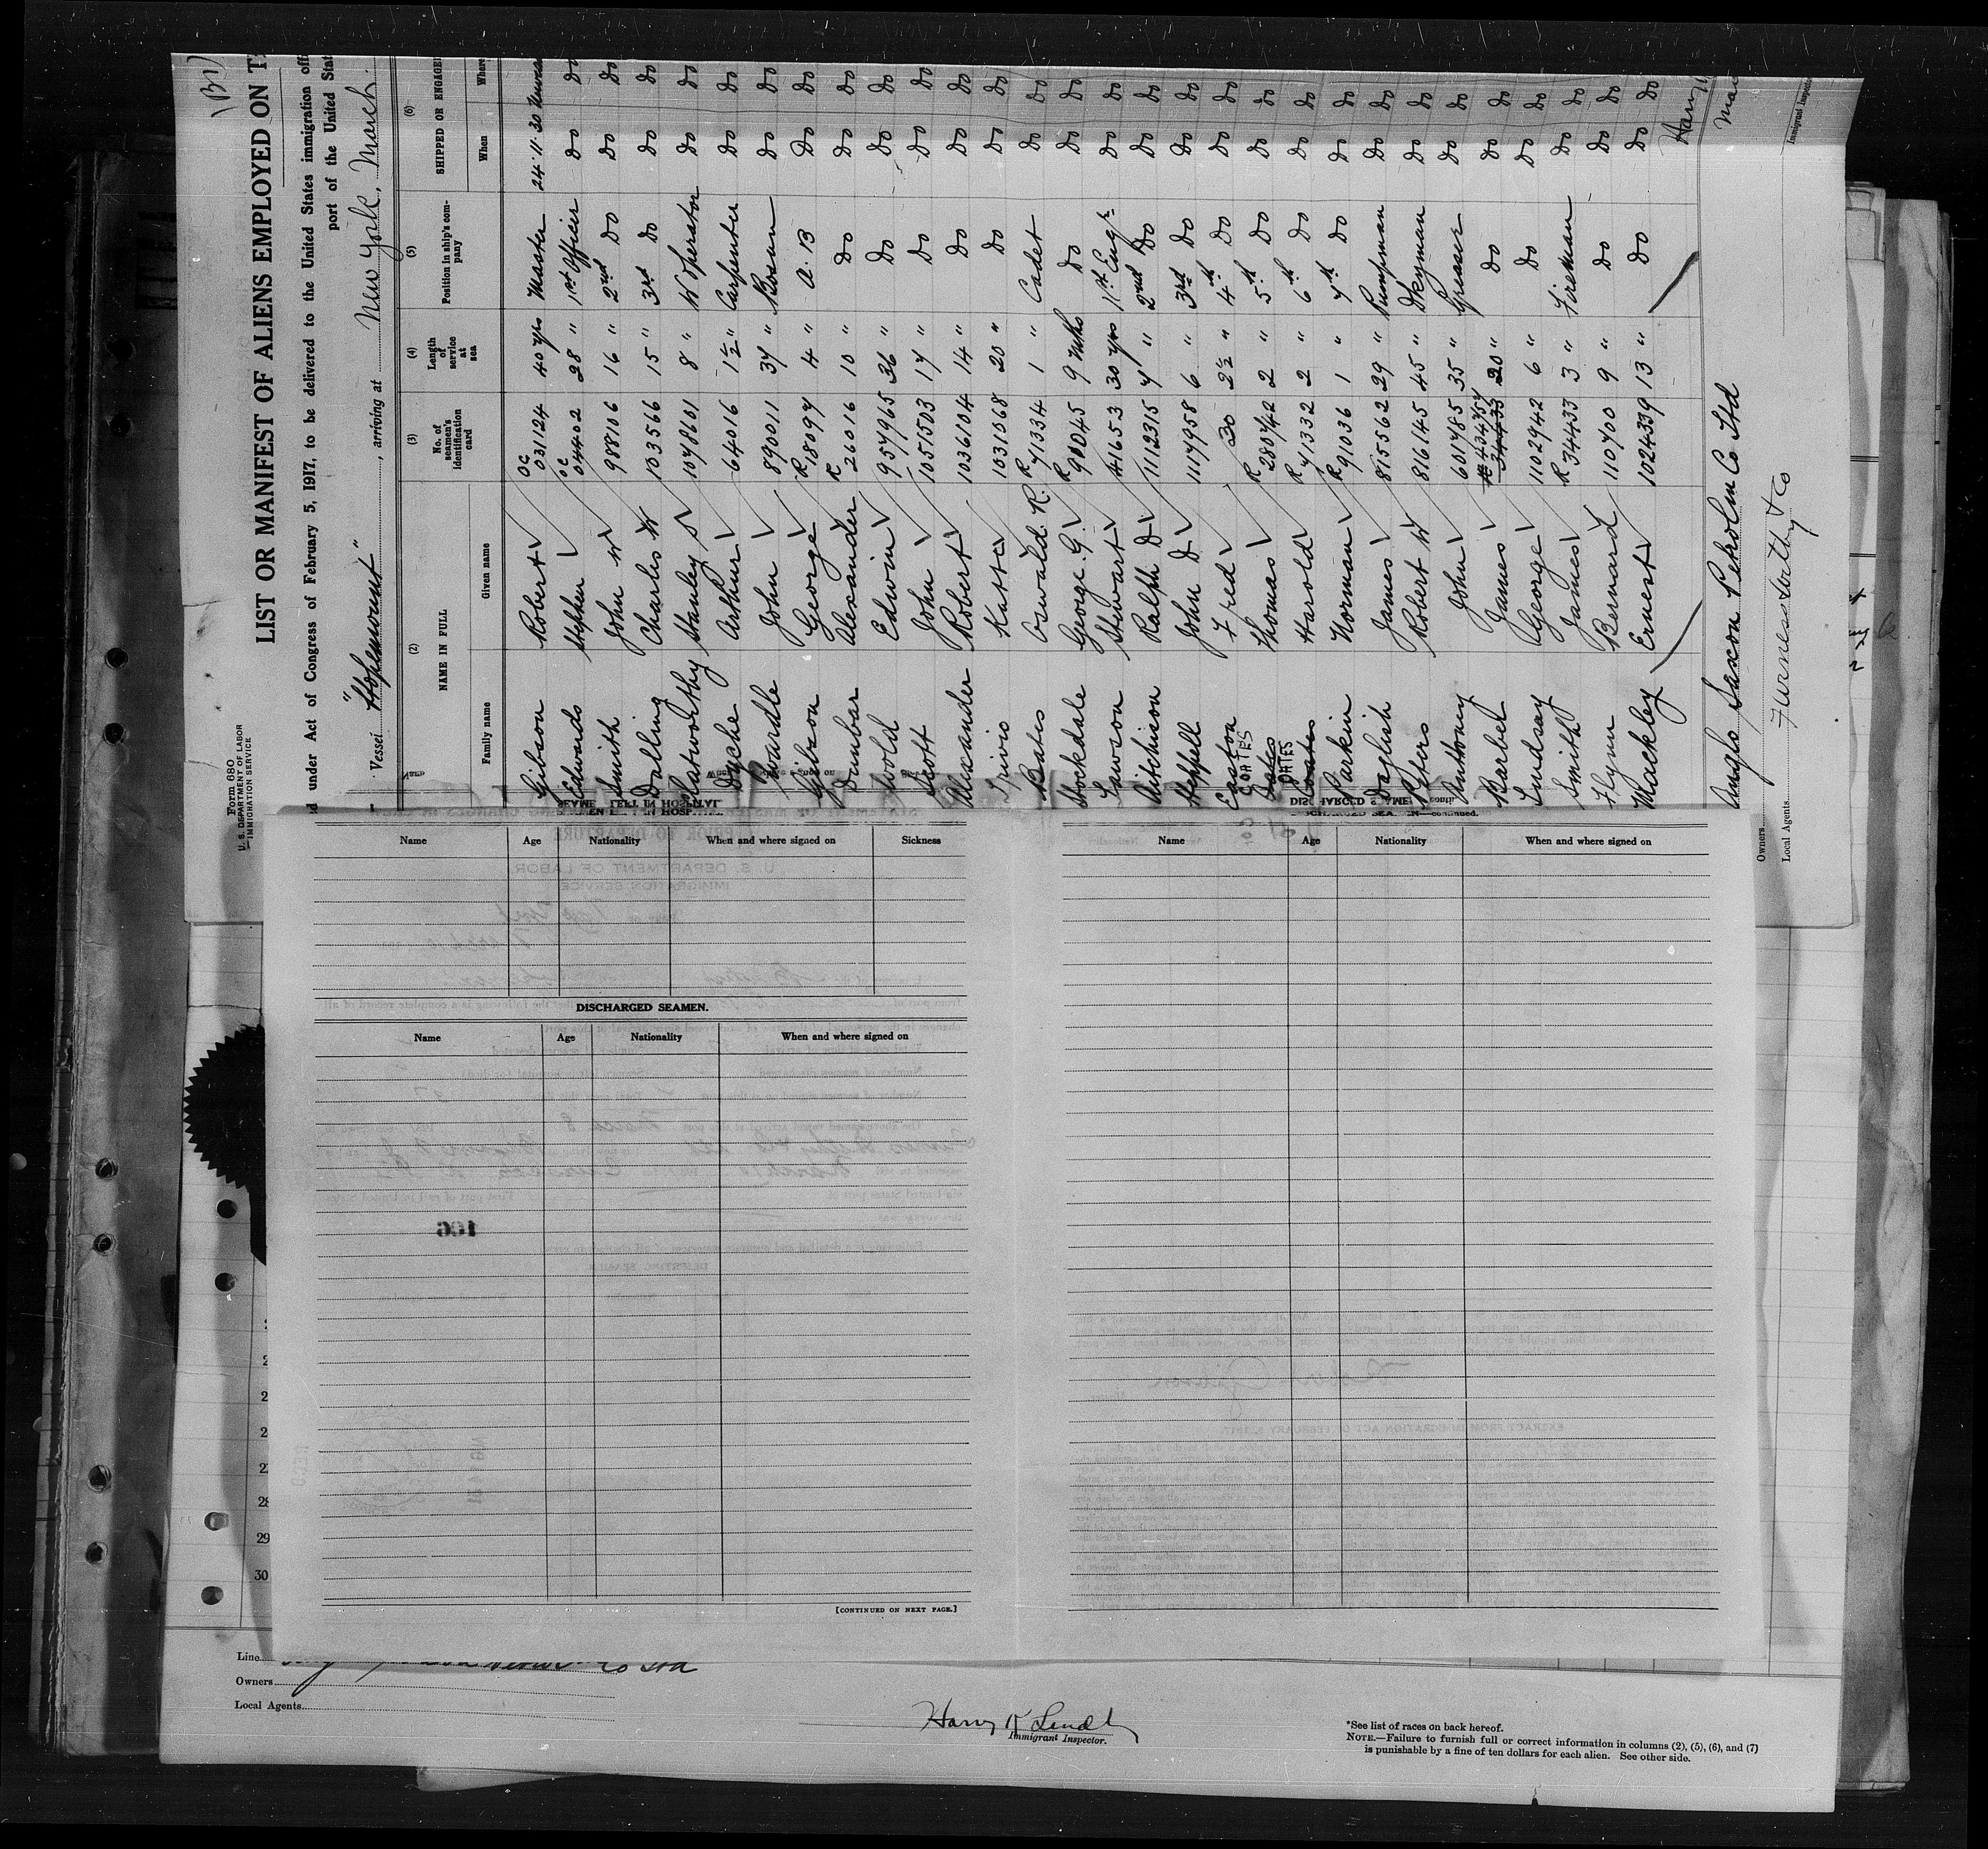 (B1)
Form 680
U. S. DEPARTMENT OF LABOR
IMMIGRATION SERVICE
LIST OR MANIFEST OF ALIENS EMPLOYED ON T
d under Act of Congress of February 5, 1917, to be delivered to the United States immigration off
port of the United Stat
Vessel "Hopemount", arriving at New York, March
(2) (3) (4) (5) (6)
NAME IN FULL No. of seamen's identification card Length of service at sea Position in ship's company SHIPPED OR ENGAGED
Family name Given name When Where
Gibson Robert OC 031124 40 yrs Master 24.11.30
Edwards Stephen OC 04402 28 " 1st Officer Do Do
Smith John W 988106 16 " 2nd Do Do Do
Dalling Charles W 103566 15 " 3rd Do Do Do
Stanley S 1078601 8 " W Operator Do Do
Dyche Arthur 64016 1½ " Carpenter Do Do
Wardle John 890011 37 " Bosun Do Do
Gibson George R 18097 4 " A. B Do Do
Dunbar Alexander R 26016 10 " Do Do Do
Wold Edwin 957965 36 " Do Do Do
Scott John 1051503 17 " Do Do Do
Alexander Robert 1036104 14 " Do Do Do
1031068 20 " Do Do Do
Bates Oswald. R. R 71334 1 " Cadet Do Do
Stockdale George. G. R 90045 9 Mths Do Do Do
Lawson Stewart 41653 30 yrs 1st Engr Do Do
Aitchison Ralph D 1112315 7 " 2nd Do Do Do
Heppell John D 1117958 6 " 3rd Do Do Do
Easton Fred 30 2½ " 4th Do Do Do
COATES Thomas R 280742 2 " 5th Do Do Do
OATES Harold R 41332 2 " 6th Do Do Do
Parkin Norman R 91036 1 " 7th Do Do Do
Daglish James 815562 29 " Pumpman Do Do
Peters Robert W 816145 45 " Dkeyman Do Do
Anthoney John 601785 35 " Greaser Do Do
Barbel James 20 " Do Do Do
Lindsay George 1102942 6 " Do Do Do
Smith James R 34433 3 " Fireman Do Do
Flynn Bernard 110700 9 " Do Do Do
Mackley Ernest 1024339 13 " Do Do Do
Anglo Saxon Petrolm Co Ltd
Owners
Local Agents Furness Withy & Co
Immigrant Inspector
SEAMEN LEFT IN HOSPITAL.
Name Age Nationality When and where signed on Sickness
DISCHARGED SEAMEN.
Name Age Nationality When and where signed on
166
[CONTINUED ON NEXT PAGE.]
DISCHARGED SEAMEN—continued.
Name Age Nationality When and where signed on
28
29
30
Line
Owners
Local Agents
Harry
Immigrant Inspector.
*See list of races on back hereof.
NOTE.—Failure to furnish full or correct information in columns (2), (5), (6), and (7)
is punishable by a fine of ten dollars for each alien. See other side.